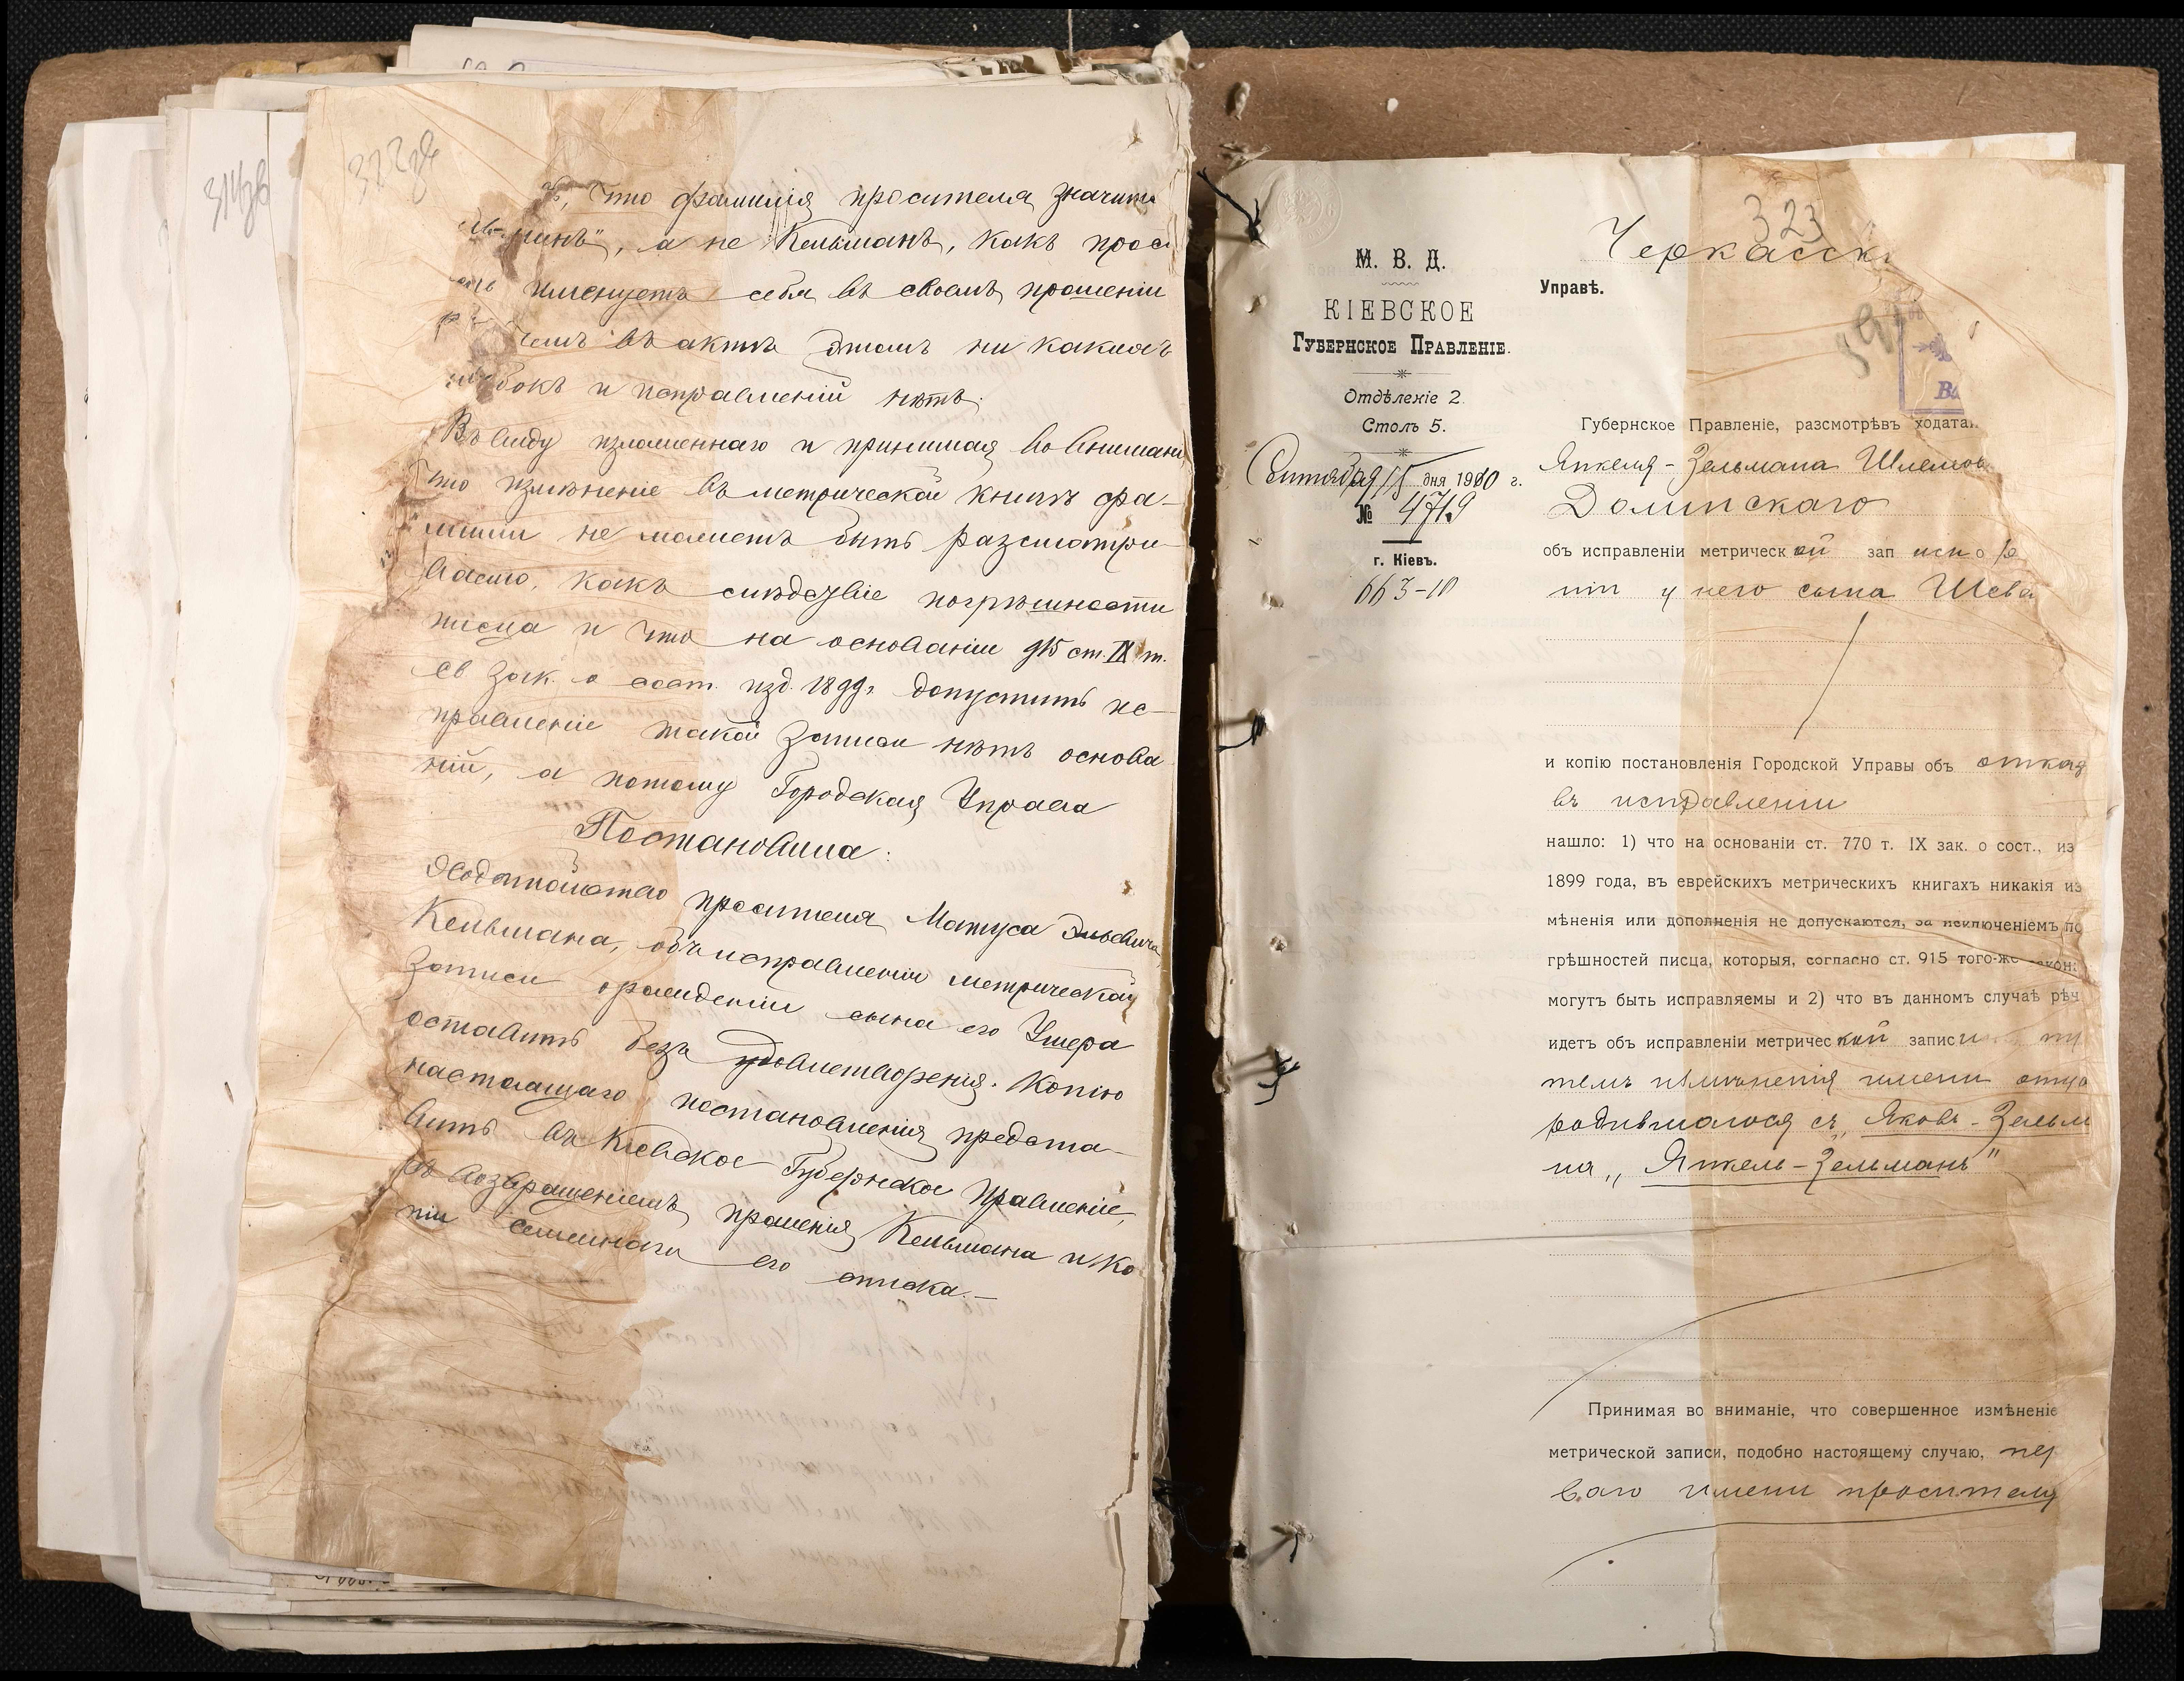 314об
322об
что фамилія просителя значит
а не Кельманъ, какъ прос
именуетъ себя въ своемъ прошеніи
чемъ въ актѣ этомъ ни какихъ
и исправленій нѣтъ.
Въ виду изложеннаго и принимая во внимані
что измѣненіе въ метрической книгѣ фа-
миліи не можетъ быть разсматри-
ваемо, какъ слѣдствіе погрѣшности
писца и что на основаніи 915 ст. IX т.
св зак. о сост. изд. 1899 г. допустить ис-
правленіе такой записи нѣтъ основа
ній, а потому Городская Управа
Постановила:
Ходатайство просителя Матуса Эльевича
Кельмана, объ исправленіи метрической
записи о рожденіи сына его Ушера
оставить безъ удовлетворенія. Копію
настоящаго постановленія предста-
вить въ Кіевское Губернское Правленіе,
съ возвращеніемъ прошенія Кельмана и ко
піи семейнаго его списка.—
323
Черкасск
Управѣ.
М. В. Д.
КІЕВСКОЕ
ГУБЕРНСКОЕ ПРАВЛЕНІЕ.
Отдѣленіе 2.
Столъ 5.
Сентября 15 дня 1910 г.
№ 4719
г. Кіевъ.
663-10
Губернское Правленіе, разсмотрѣвъ ходата
Янкеля-Зельмана Шлемов
Долинскаго
объ исправленіи метрической записи о ро
ніи у него сына Шева
и копію постановленія Городской Управы объ отказ
въ исправленіи
нашло: 1) что на основаніи ст. 770 т. IX зак. о сост., из
1899 года, въ еврейскихъ метрическихъ книгахъ никакія из
мѣненія или дополненія не допускаются, за исключеніемъ по
грѣшностей писца, которыя, согласно ст. 915 того-же закона
могутъ быть исправляемы и 2) что въ данномъ случаѣ рѣч
идетъ объ исправленіи метрической записи пу
темъ измѣненія имени отца
родившагося съ „Яковъ-Зельм
на „Янкель-Зельманъ"
Принимая во вниманіе, что совершенное измѣненіе
метрической записи, подобно настоящему случаю, пер
ваго имени просителя